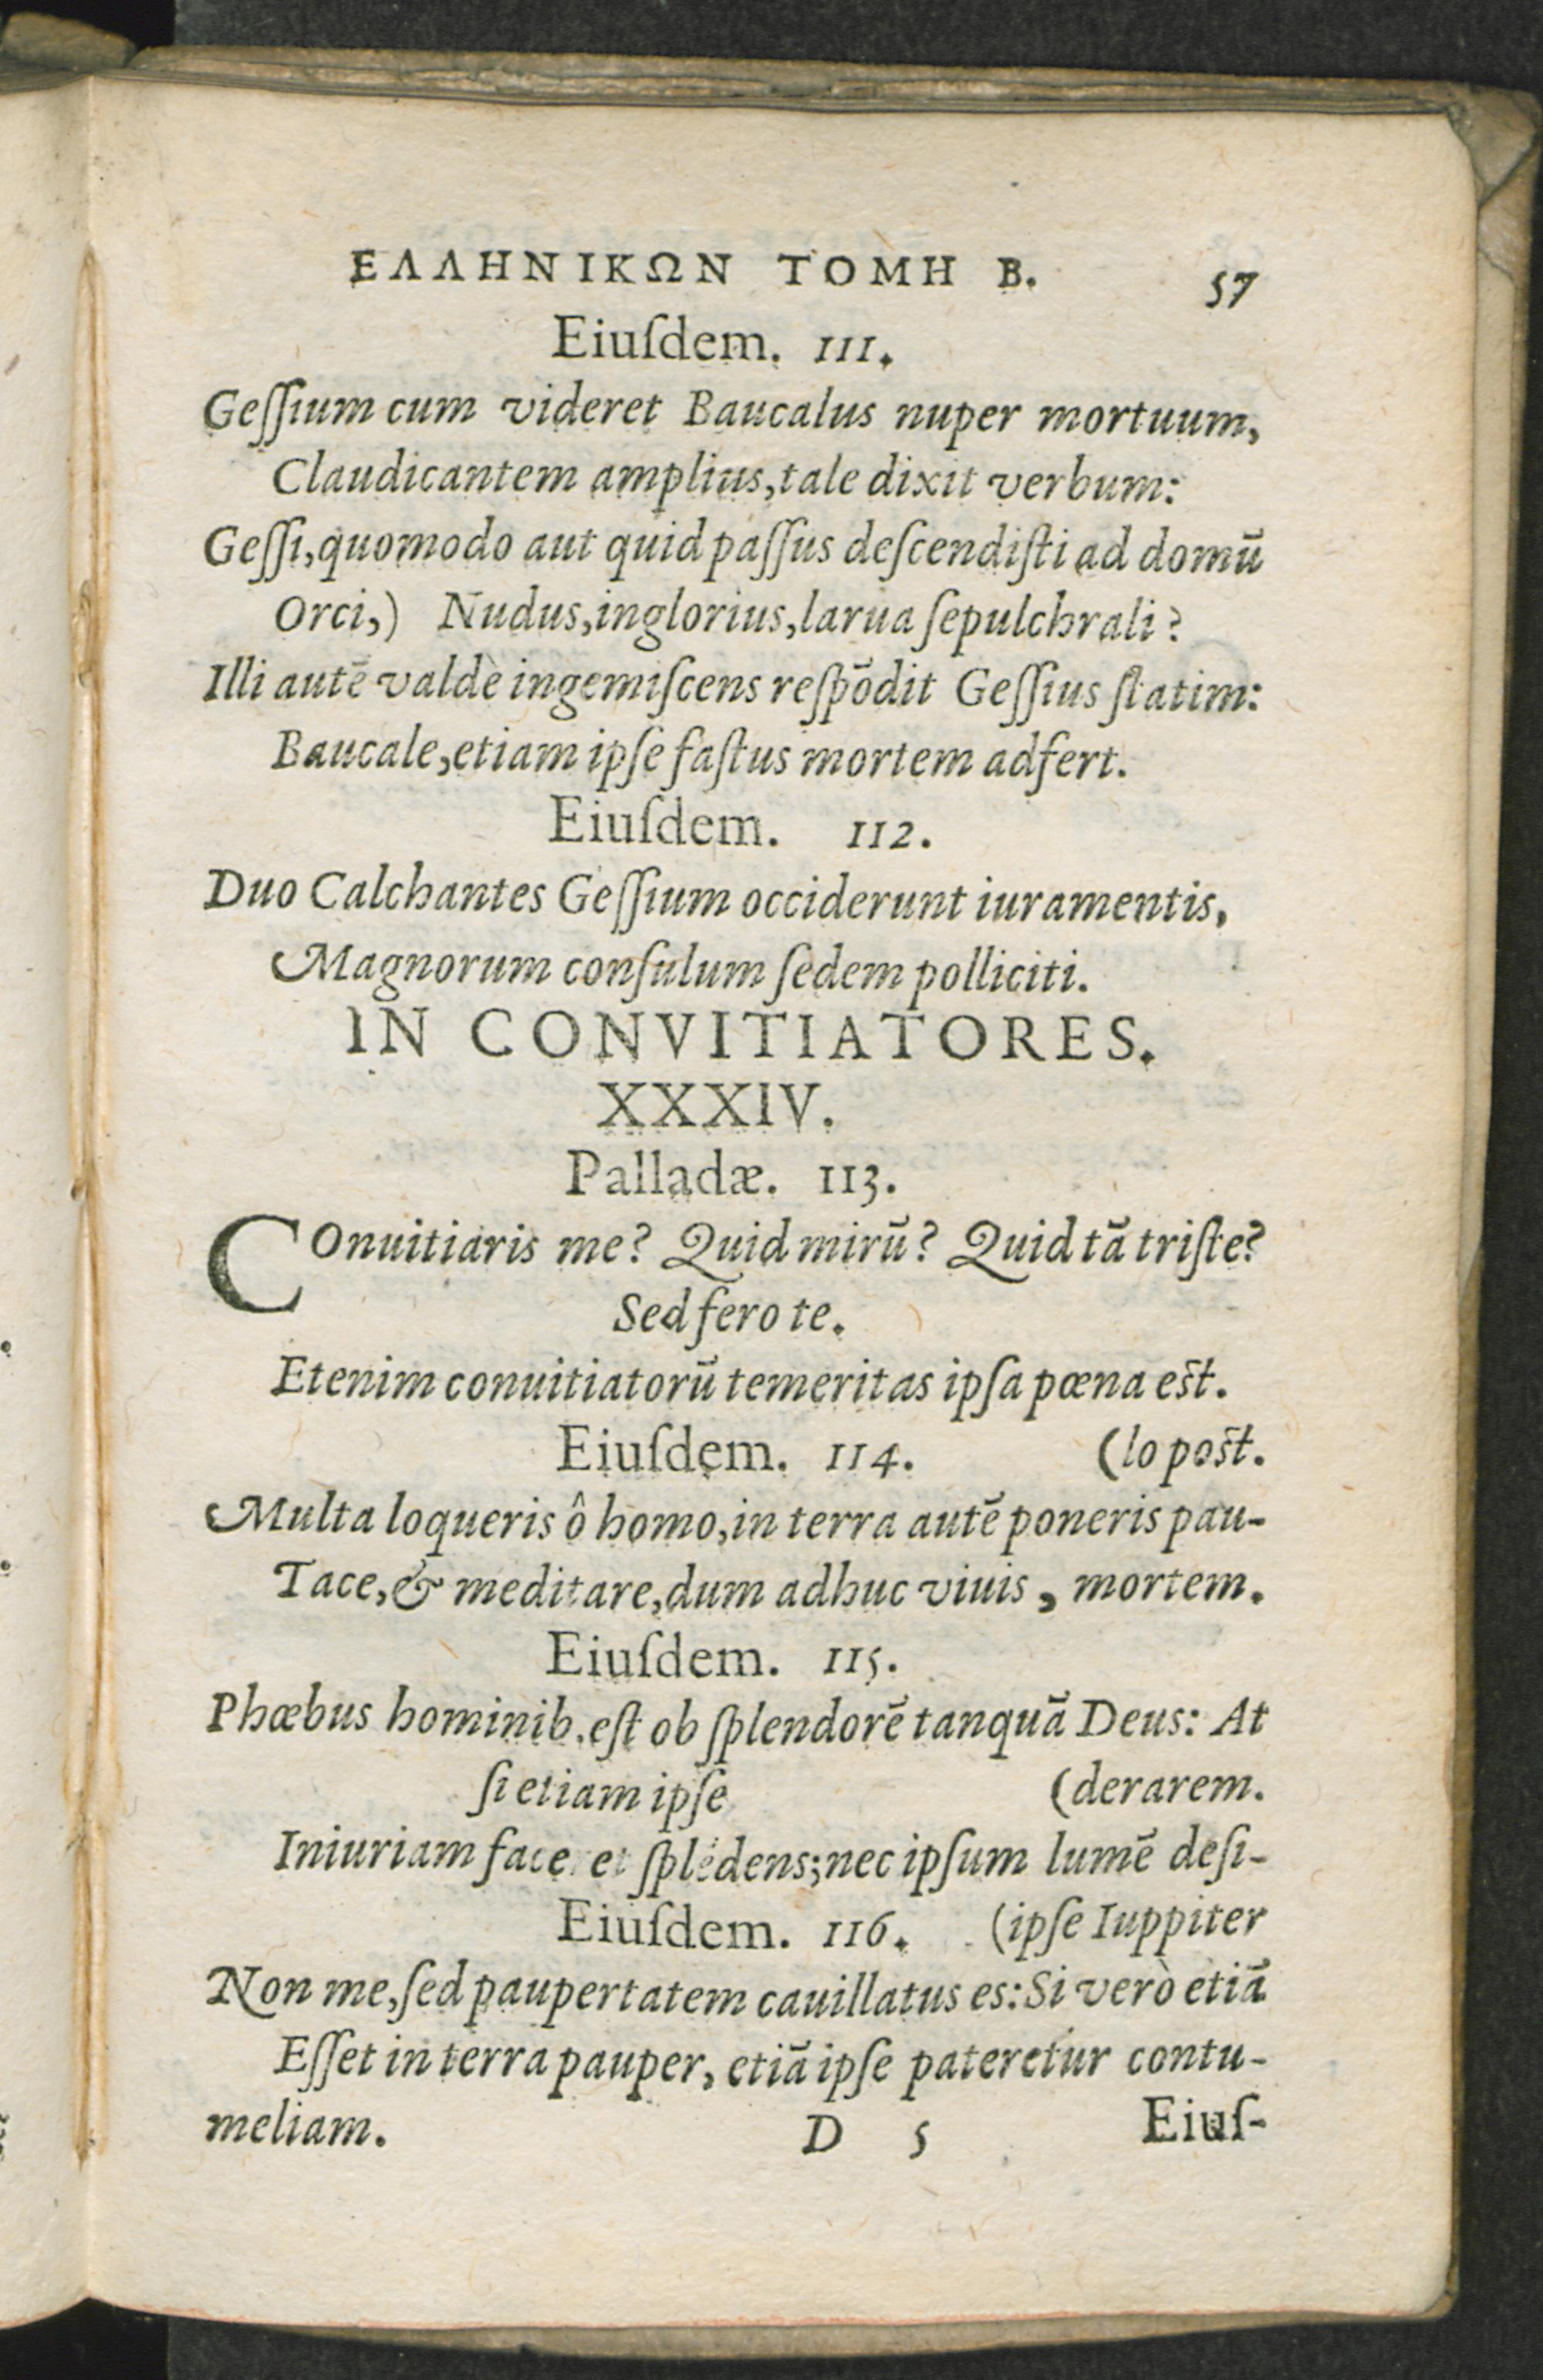 ΕΛΛΗΝΙΚΩΝ ΤΟΜΗ Β. 57
Eiuſdem. 111.
Geſſium cum videret Baucalus nuper mortuum,
Claudicantem amplius, tale dixit verbum:
Geſſi, quomodo aut quid paſſus deſcendiſti ad domū
Orci,) Nudus, inglorius, larua ſepulchrali?
Illi autē valdè ingemiſcens reſpōdit Geſſius ſtatim:
Baucale, etiam ipſe faſtus mortem adfert.
Eiuſdem. 112.
Duo Calchantes Geſſium occiderunt iuramentis,
Magnorum conſulum ſedem polliciti.
IN CONVITIATORES.
XXXIV.
Palladæ. 113.
COnuitiaris me? Quid mirū? Quid tā triſte?
Sed fero te.
Etenim conuitiatorū temeritas ipſa pœna est.
Eiuſdem. 114. (lo post.
Multa loqueris ô homo, in terra autē poneris pau-
Tace, & meditare, dum adhuc viuis, mortem.
Eiuſdem. 115.
Phœbus hominib. eſt ob ſplendorē tanquā Deus: At
ſi etiam ipſe (derarem.
Iniuriam faceret ſplēdens; nec ipſum lumē deſi-
Eiuſdem. 116. (ipſe Iuppiter
Non me, ſed paupertatem cauillatus es: Si verò etiā
Eſſet in terra pauper, etiā ipſe pateretur contu-
meliam. D 5 Eiuſ-